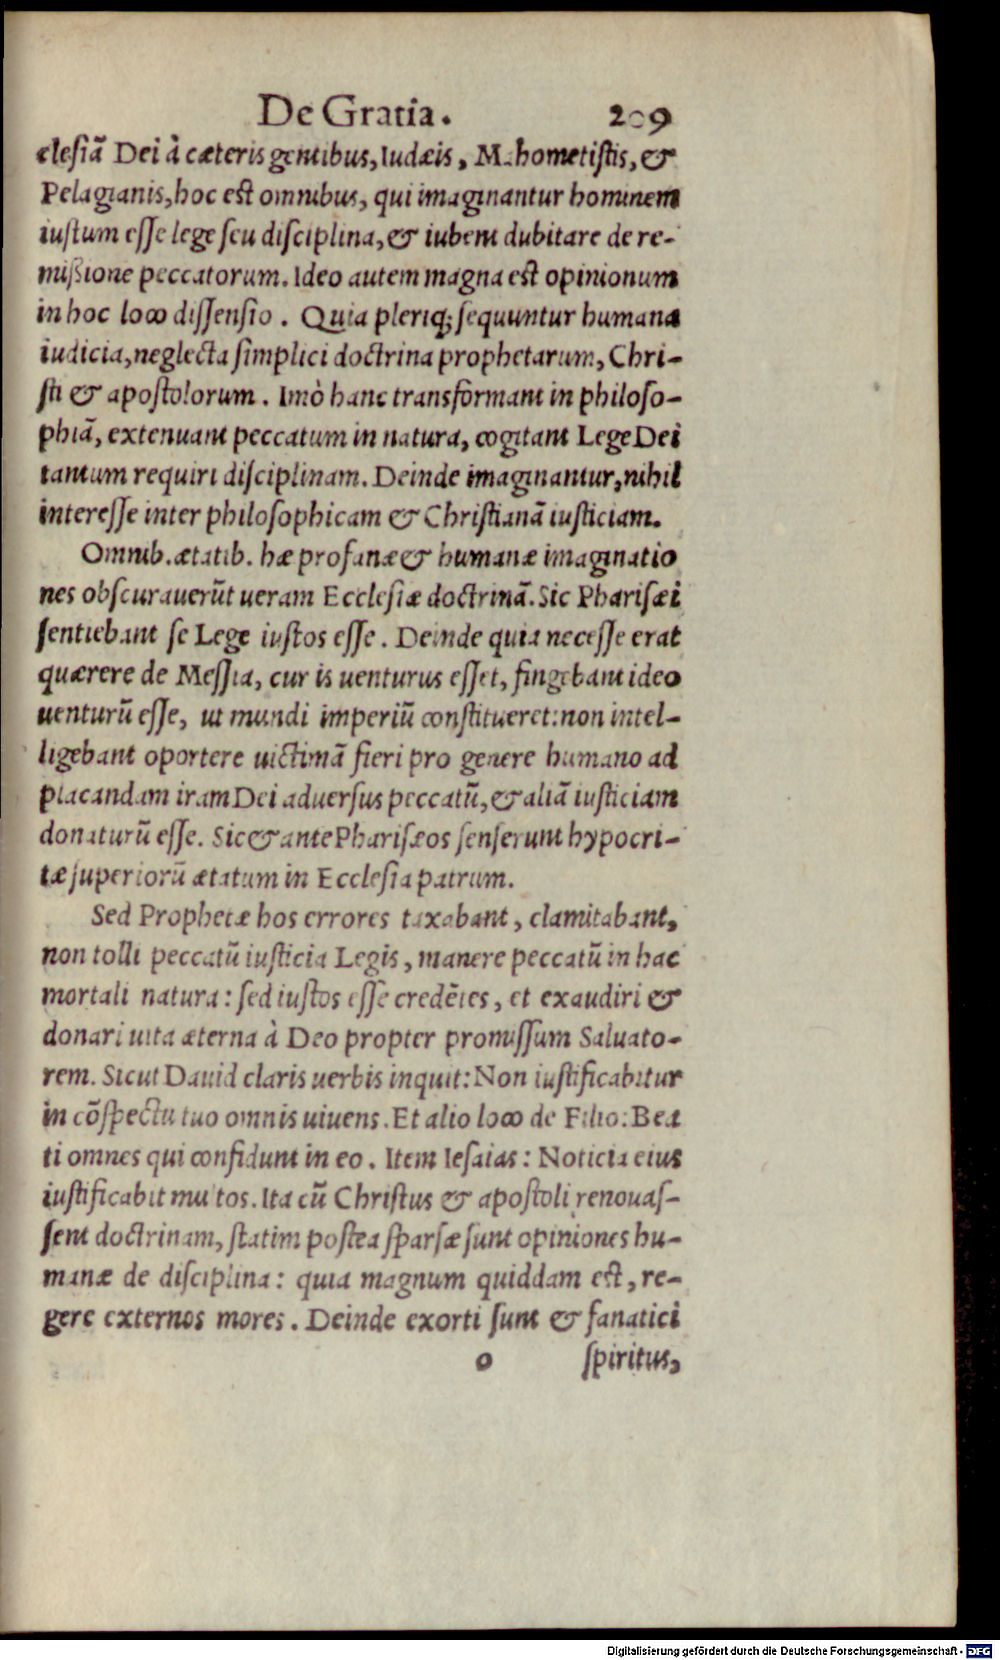 De Gratia. 209
clesiã Dei à cæteris gentibus, Iudæis, Mahometistis, &
Pelagianis, hoc est omnibus, qui imaginantur hominem
iustum esse lege seu disciplina, & iubent dubitare de re-
mißione peccatorum. Ideo autem magna est opinionum
in hoc loco dissensio. Quia pleriq; sequuntur humana
iudicia, neglecta simplici doctrina prophetarum, Chri-
sti & apostolorum. Imò hanc transformant in philoso-
phiã, extenuant peccatum in natura, cogitant Lege Dei
tantum requiri disciplinam. Deinde imaginantur, nihil
interesse inter philosophicam & Christianã iusticiam.
Omnib. ætatib. hæ profanæ & humanæ imaginatio
nes obscurauerũt ueram Ecclesiæ doctrinã. Sic Pharisæi
sentiebant se Lege iustos esse. Deinde quia necesse erat
quærere de Messia, cur is uenturus esset, fingebant ideo
uenturũ esse, ut mundi imperiũ constitueret: non intel-
ligebant oportere uictimã fieri pro genere humano ad
placandam iram Dei aduersus peccatũ, & aliã iusticiam
donaturũ esse. Sic & ante Pharisæos senserunt hypocri-
tæ superiorũ ætatum in Ecclesia patrum.
Sed Prophetæ hos errores taxabant, clamitabant,
non tolli peccatũ iusticia Legis, manere peccatũ in hac
mortali natura: sed iustos esse credẽtes, et exaudiri &
donari uita æterna à Deo propter promissum Saluato-
rem. Sicut Dauid claris uerbis inquit: Non iustificabitur
in cõspectu tuo omnis uiuens. Et alio loco de Filio: Bea
ti omnes qui confidunt in eo. Item Iesaias: Noticia eius
iustificabit multos. Ita cũ Christus & apostoli renouas-
sent doctrinam, statim postea sparsæ sunt opiniones hu-
manæ de disciplina: quia magnum quiddam est, re-
gere externos mores. Deinde exorti sunt & fanatici
o spiritus,
Digitalisierung gefördert durch die Deutsche Forschungsgemeinschaft - DFG